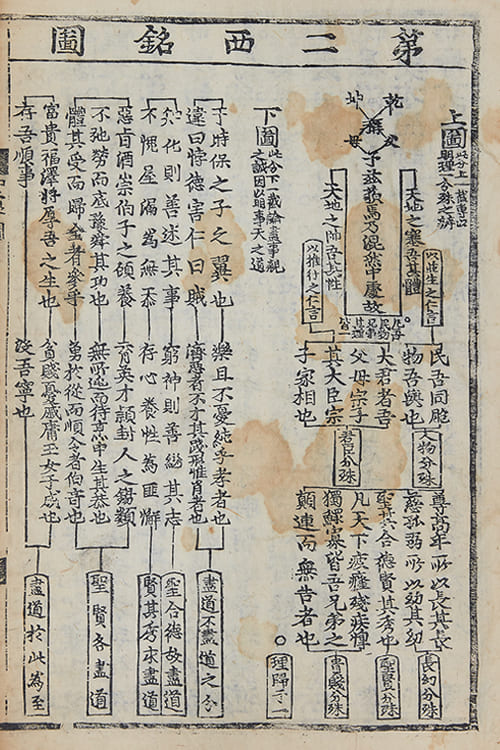 第二西銘圖
上圖
此分上一截專以
明理一分殊之辨
乾父
坤母
稱
天地之塞吾其體
以並生之仁言
予玆藐焉乃混然中處故
天地之帥吾其性
以推行之仁言
民吾同胞
物吾與也
人物分殊
大君者吾
父母宗子
其大臣宗
子家相也
君臣分殊
尊高年所以長其長
慈孤弱所以幼其幼
長幼分殊
聖其合德賢其秀也
聖賢分殊
凡天下疲癃殘疾惸
獨鰥寡皆吾兄弟之
顚連而無告者也
貴賤分殊
理歸于一
下圖
此分下一截論盡事親
之誠因以明事天之道
于時保之子之翼也
樂且不憂純乎孝者也
違曰悖德害仁曰賊
濟惡者不才其踐形惟肖者也
盡道不盡道之分
知化則善述其事
窮神則善繼其志
聖合德故盡道
不愧屋漏爲無忝
存心養性爲匪懈
賢其秀求盡道
惡旨酒崇伯子之顧養
育英才穎封人之錫類
不弛勞而底豫舜其功也
無所逃而待烹申生其恭也
體其受而歸全者參乎
勇於從而順令者伯奇也
聖賢各盡道
富貴福澤將厚吾之生也
貧賤憂戚庸玉女于成也
存吾順事
沒吾寧也
盡道於此爲至